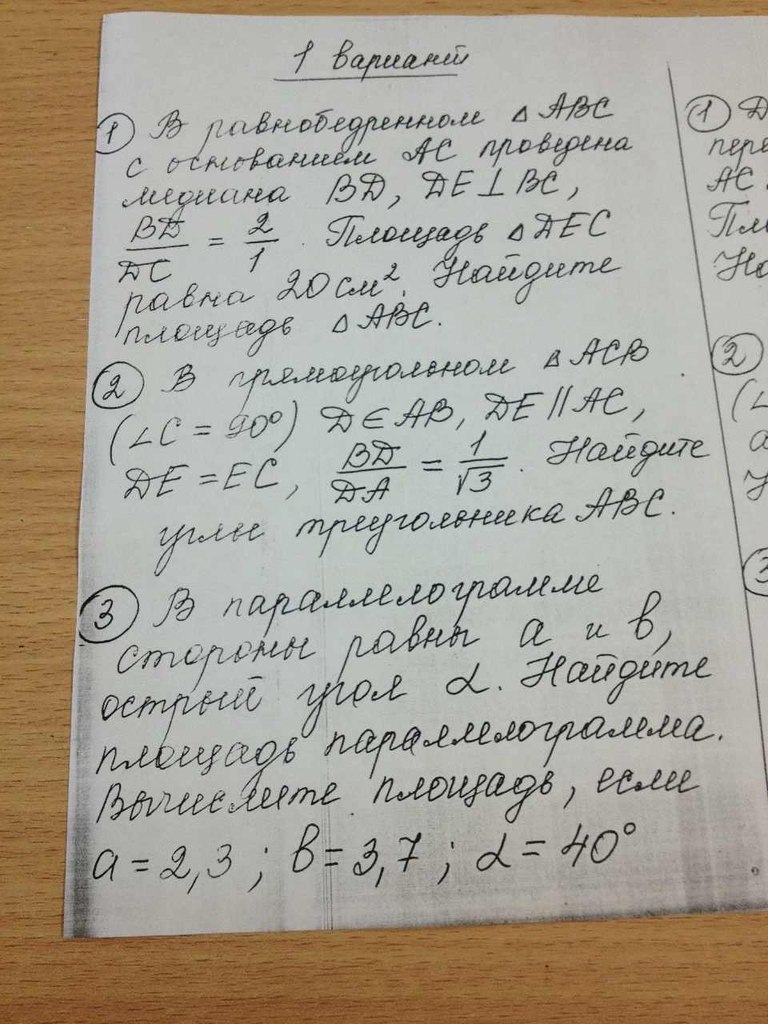 1 вариант
① В равнобедренном △ABC
с основанием AC проведена
медиана BD, DE⊥BC,
BD/DC = 2/1. Площадь △DEC
равна 20 см². Найдите
площадь △ABC.
② В прямоугольном △ACB
(∠C = 90°) D∈AB, DE∥AC,
DE = EC, BD/DA = 1/√3. Найдите
углы треугольника ABC.
③ В параллелограмме
стороны равны a и b,
острый угол α. Найдите
площадь параллелограмма.
Вычислите площадь, если
a = 2,3; b = 3,7; α = 40°
①
AC
②